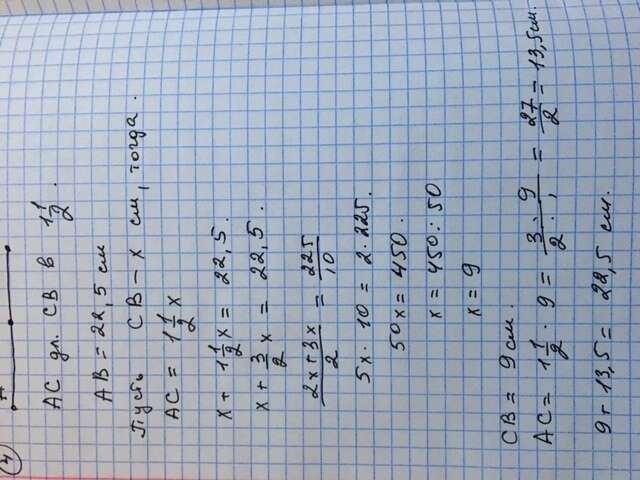 4
A
AC дл. CB в 1 1/2.
AB = 22,5 см
Пусть CB – x см, тогда.
AC = 1 1/2 x
x + 1 1/2 x = 22,5.
x + 3/2 x = 22,5.
(2x+3x)/2 = 225/10
5x · 10 = 2 · 225.
50x = 450.
x = 450 : 50
x = 9
CB = 9 см.
AC = 1 1/2 · 9 = (3 · 9)/(2 · 1) = 27/2 = 13,5 см.
9 + 13,5 = 22,5 см.